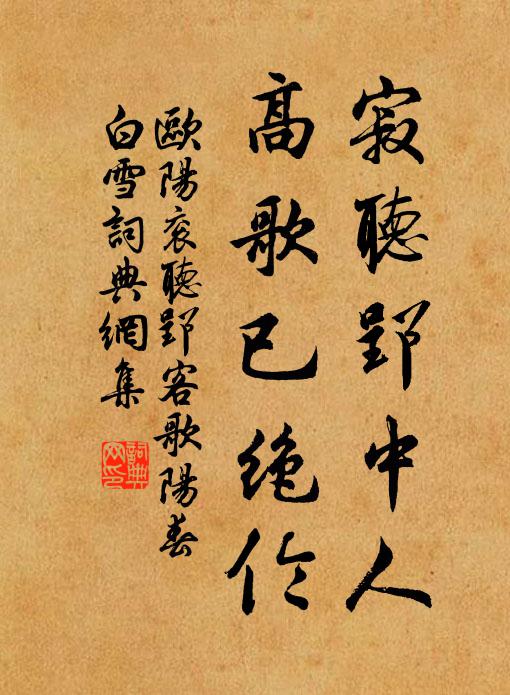 寂聽郢中人
高歌已絶伶
歐陽衮聽郢客歌陽春
白雪詞典網集
詞典
网印